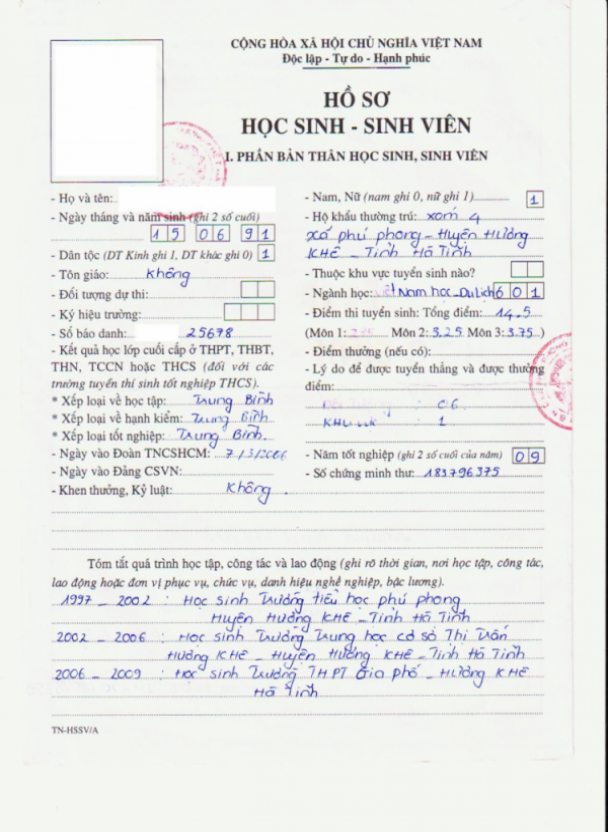 CỘNG HÒA XÃ HỘI CHỦ NGHĨA VIỆT NAM
Độc lập - Tự do - Hạnh phúc
HỒ SƠ
HỌC SINH - SINH VIÊN
I. PHẦN BẢN THÂN HỌC SINH, SINH VIÊN
- Họ và tên:
- Ngày tháng và năm sinh (ghi 2 số cuối)
15 06 91
- Dân tộc (DT Kinh ghi 1, DT khác ghi 0) 1
- Tôn giáo: Không
- Đối tượng dự thi:
- Ký hiệu trường:
- Số báo danh: 25678
- Kết quả học lớp cuối cấp ở THPT, THBT,
THN, TCCN hoặc THCS (đối với các
trường tuyển thí sinh tốt nghiệp THCS).
* Xếp loại về học tập: Trung Bình
* Xếp loại về hạnh kiểm: Trung Bình
* Xếp loại tốt nghiệp: Trung Bình.
- Ngày vào Đoàn TNCSHCM:
- Ngày vào Đảng CSVN:
- Khen thưởng, Kỷ luật: Không.
- Nam, Nữ (nam ghi 0, nữ ghi 1) 1
- Hộ khẩu thường trú: xóm 4
xã phú phong - Huyện Hương
KHÊ - Tỉnh Hà Tĩnh
- Thuộc khu vực tuyển sinh nào?
- Ngành học: việt Nam học - Du lịch 601
- Điểm thi tuyển sinh: Tổng điểm: 14.5
(Môn 1: Môn 2: 3.25 Môn 3: 3.75)
- Điểm thưởng (nếu có):
- Lý do để được tuyển thẳng và được thưởng
điểm:
Đối tượng : 06
Khu vực : 1
- Năm tốt nghiệp (ghi 2 số cuối của năm) 09
- Số chứng minh thư: 183796375
Tóm tắt quá trình học tập, công tác và lao động (ghi rõ thời gian, nơi học tập, công tác,
lao động hoặc đơn vị phục vụ, chức vụ, danh hiệu nghề nghiệp, bậc lương).
1997 - 2002 : Học sinh Trường tiểu học phú phong
Huyện Hương KHÊ - Tỉnh Hà Tĩnh
2002 - 2006 : Học sinh Trường Trung học cơ sở Thị Trấn
Hương KHÊ - Huyện Hương KHÊ - Tỉnh Hà Tĩnh
2006 - 2009 : Học sinh Trường THPT Gia phố - Hương KHÊ
Hà Tĩnh
TN-HSSV/A